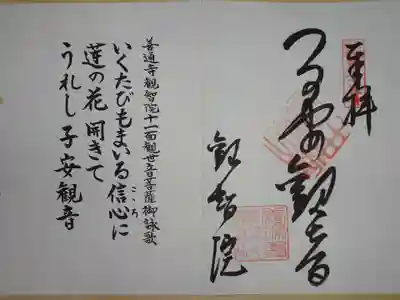 奉拝
つるやの観世音
観智院
善通寺観智院十一面観世音菩薩御詠歌
いくたびもまいる信心に
こゝち
蓮の花開きて
うれし子安観音